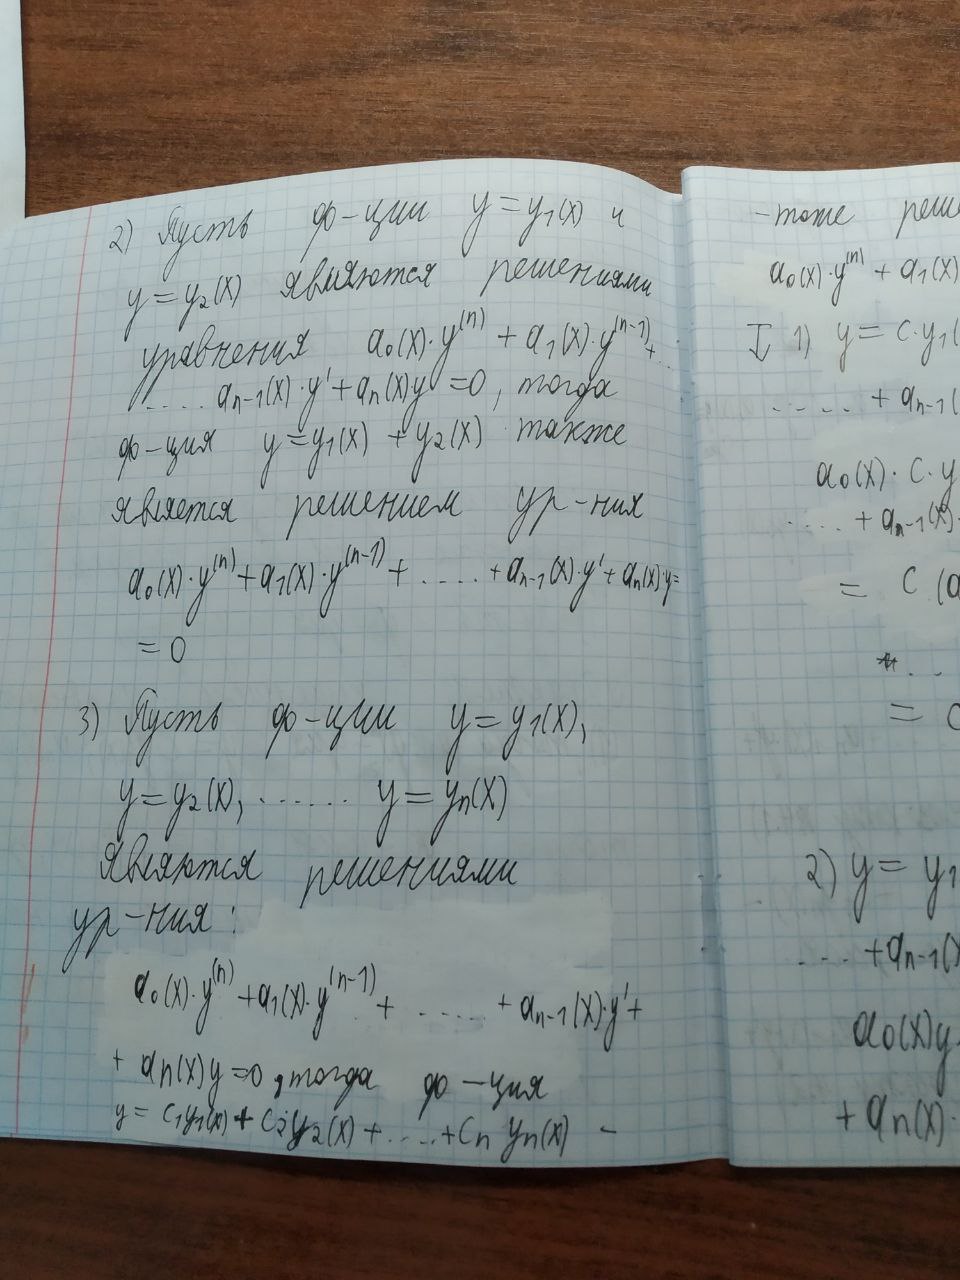 2) Пусть ф-ции y = y₁(x) и
y = y₂(x) являются решениями
уравнения a₀(x)·y⁽ⁿ⁾ + a₁(x)·y⁽ⁿ⁻¹⁾ + ...
..... aₙ₋₁(x)·y' + aₙ(x)y = 0, тогда
ф-ция y = y₁(x) + y₂(x) также
является решением ур-ния
a₀(x)·y⁽ⁿ⁾ + a₁(x)·y⁽ⁿ⁻¹⁾ + ..... + aₙ₋₁(x)·y' + aₙ(x)·y =
= 0
3) Пусть ф-ции y = y₁(x),
y = y₂(x), ...... y = yₙ(x)
являются решениями
ур-ния:
a₀(x)·y⁽ⁿ⁾ + a₁(x)·y⁽ⁿ⁻¹⁾ + ...... + aₙ₋₁(x)·y' +
+ aₙ(x)y = 0, тогда ф-ция
y = C₁y₁(x) + C₂y₂(x) + ..... + Cₙ yₙ(x) –
– тоже реше
a₀(x)·y⁽ⁿ⁾ + a₁(x)
1) y = C·y₁(
..... + aₙ₋₁(
a₀(x)·C·y
..... + aₙ₋₁(x)·
= C (a
...
= C
2) y = y₁
.... + aₙ₋₁(x
a₀(x)y
+ aₙ(x)·